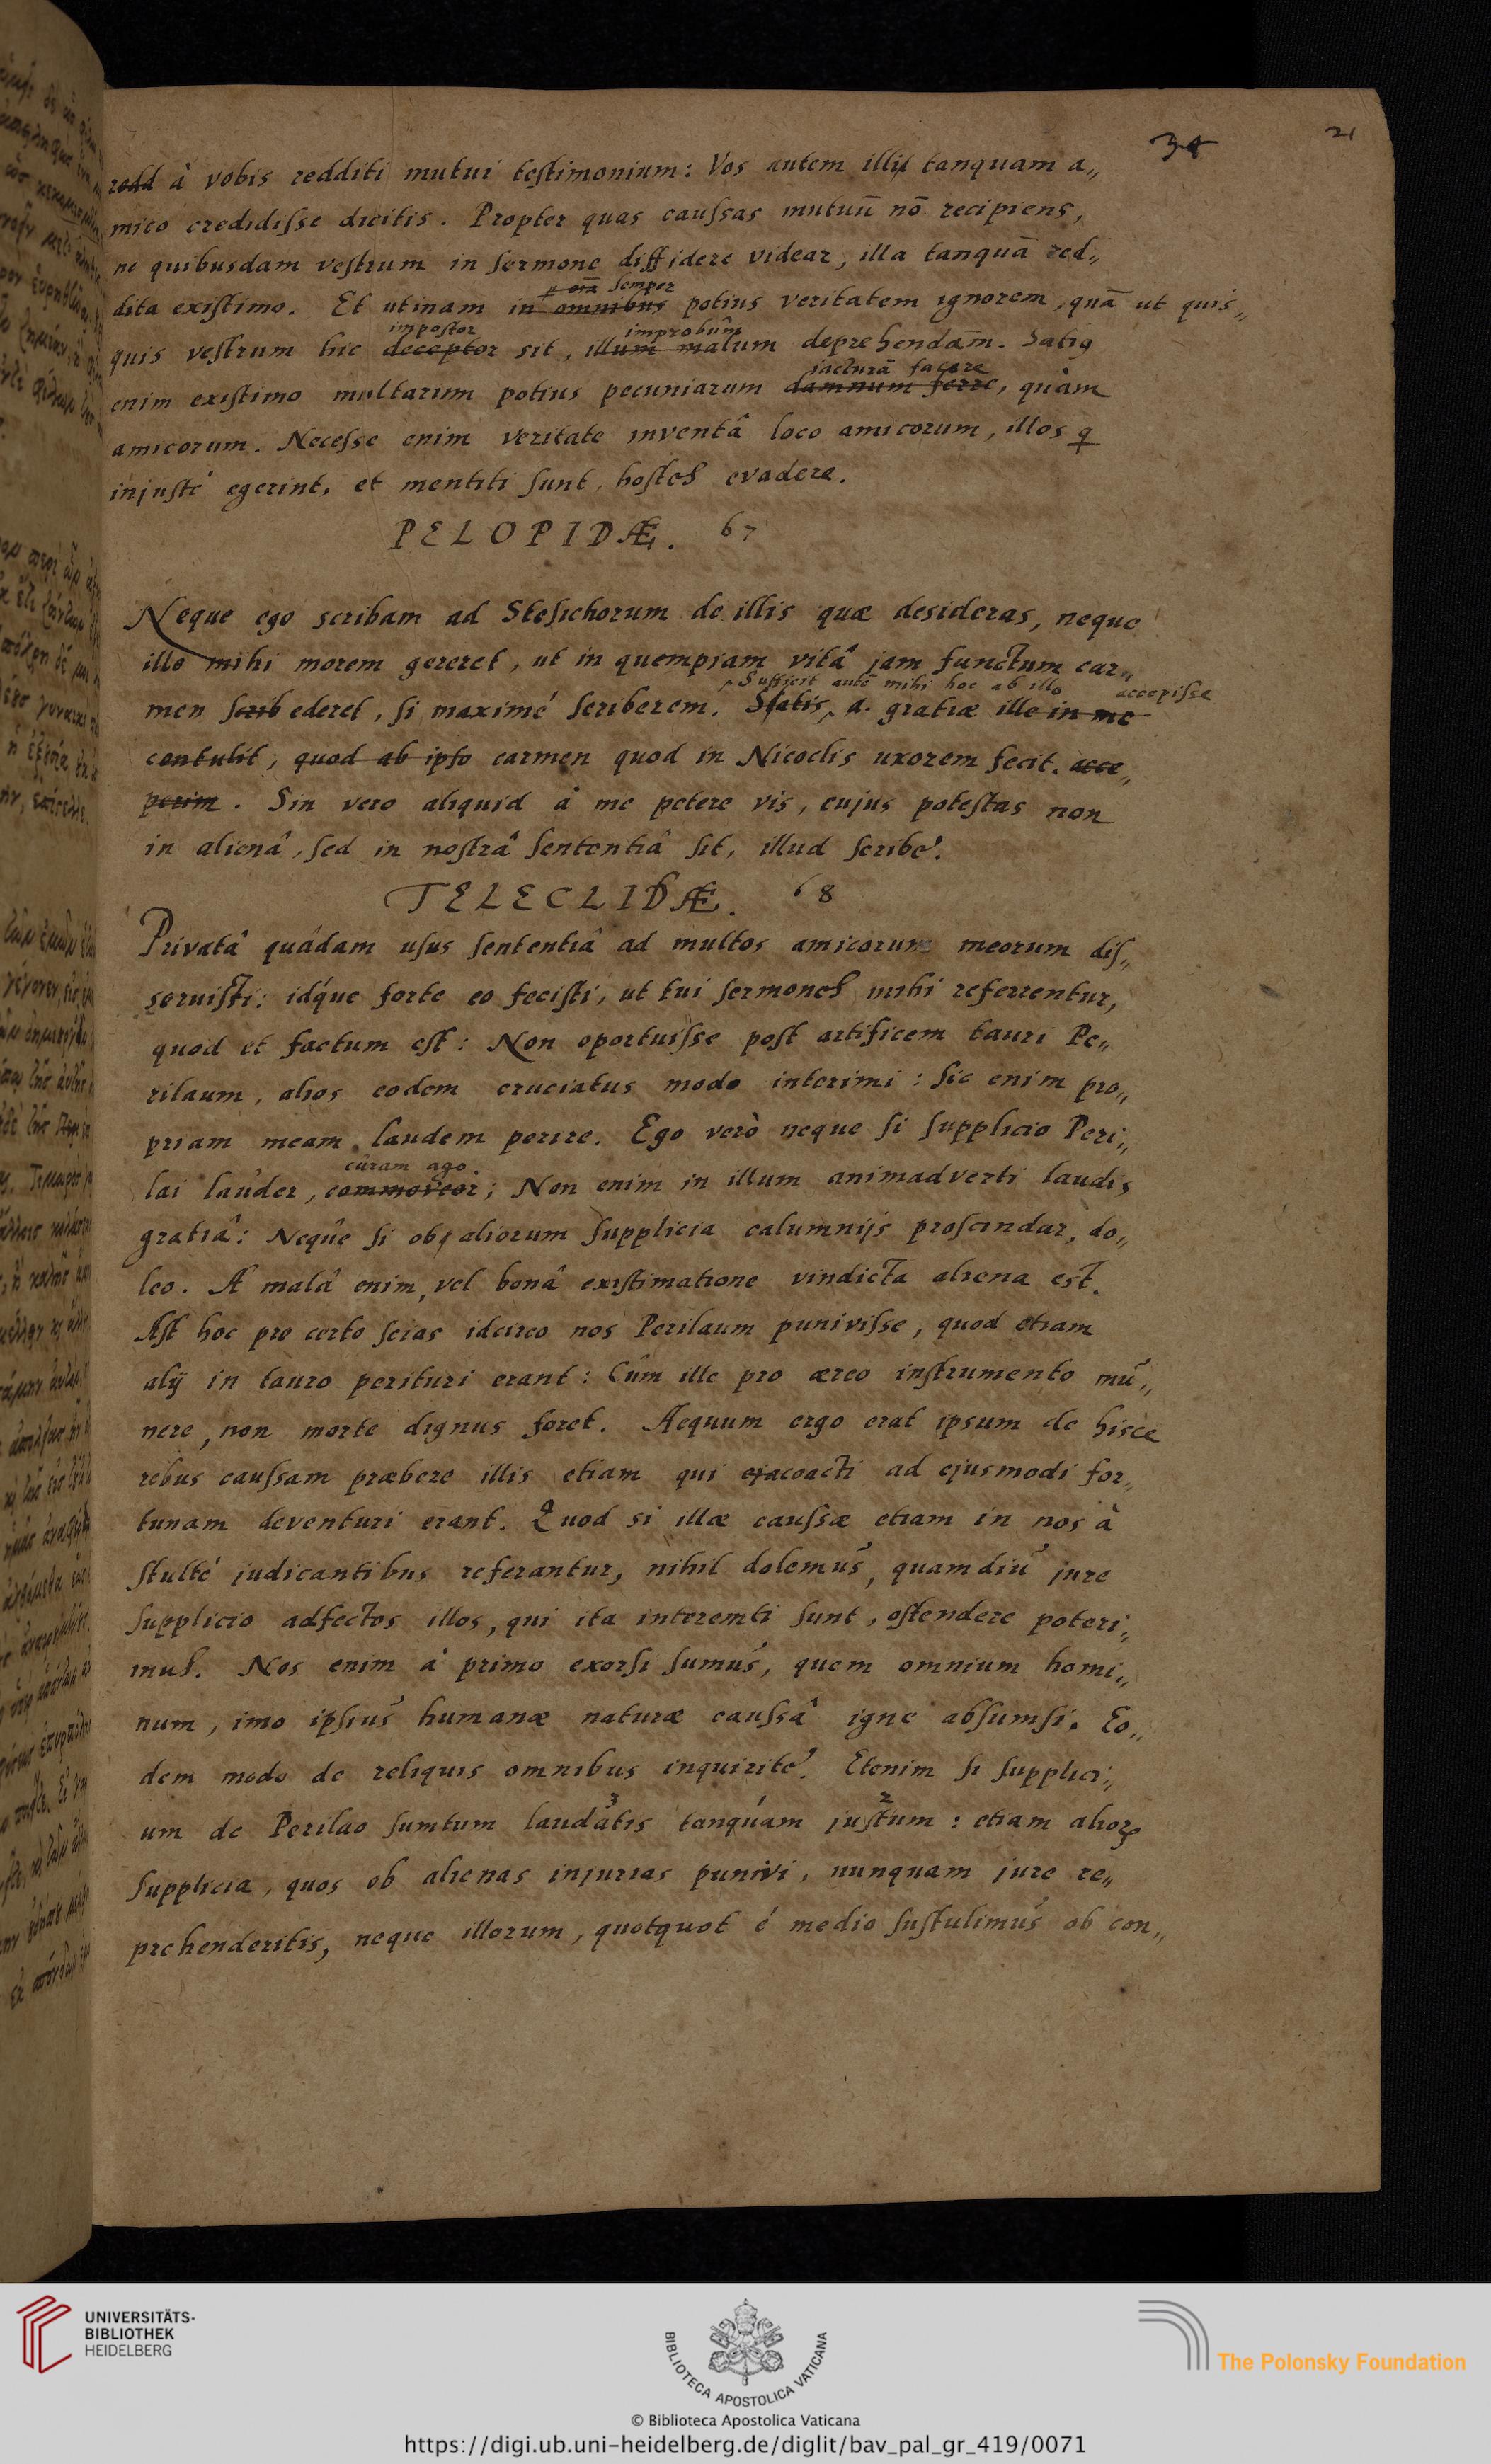 34 21
redd à vobis redditi mutui testimonium: Vos autem illis tanquam a„
mico credidisse dicitis. Propter quas caussas mutuū nō recipiens,
ne quibusdam vestrum in sermone diffidere videar, illa tanquā red„
semper
dita existimo. Et utinam in omnibus potius veritatem ignorem, quā ut quis„
impostor improbum̂
quis vestrum hic deceptor sit, illum malum deprehendam̄. Satiꝰ
jacturā facere
enim existimo multarum potius pecuniarum damnum ferre, quàm
amicorum. Necesse enim veritate inventâ loco amicorum, illos q
injusté egerint, et mentiti sunt, hostes evadere.
PELOPIDÆ. 67
Neque ego scribam ad Stesichorum de illis quæ desideras, neque
ille mihi morem gereret, ut in quempiam vitâ jam functum car„
Sufficit autē mihi hoc ab illo accepisse
men scrib ederet, si maximé scriberem. Satis, a. gratiæ ille in me
contulit, quod ab ipso carmen quod in Nicoclis uxorem fecit. acce„
perim. Sin vero aliquid à me petere vis, cujus potestas non
in alienâ, sed in nostrâ sententiâ sit, illud scribe.
TELECLIDÆ. 68
Privatâ quádam usus sententiâ ad multos amicorum meorum dis„
seruisti: idq́ue forte eo fecisti, ut tui sermones mihi referrentur,
quod et factum est: Non oportuisse post artificem tauri Pe„
rilaum, alios eodem cruciatus modo interimi: Sic enim pro„
priam meam laudem perire. Ego verò neque si supplicio Peri„
curam ago.
lai lauder, commoveor; Non enim in illum animadverti laudis
gratiâ: Neque si ob aliorum supplicia calumnijs proscindar, do„
leo. A malâ enim, vel bonâ existimatione vindicta aliena est.
Ast hoc pro certo scias idcirco nos Perilaum punivisse, quod etiam
alij in tauro perituri erant: Cum̂ ille pro æreo instrumento mu„
nere, non morte dignus foret. Aequum ergo erat ipsum de hisce
rebus caussam præbere illis etiam qui coacti ad ejusmodi for„
tunam deventuri erant. Quod si illæ caussæ etiam in nos à
stulté judicantibus referantur, nihil dolemus, quamdiu jure
supplicio adfectos illos, qui ita interemti sunt, ostendere poteri„
mus. Nos enim à primo exorsi sumus, quem omnium homi„
num, imo ipsius humanæ naturæ caussâ igne absumsi. Eo„
dem modo de reliquis omnibus inquirite. Etenim si supplici„
3 2
um de Perilao sumtum laudatis tanquám justum: etiam alioꝝ
supplicia, quos ob alienas injurias punivi, nunquam jure re„
prehenderitis, neque illorum, quotquot é medio sustulimus ob con„
UNIVERSITÄTS-
BIBLIOTHEK
HEIDELBERG
BIBLIOTECA APOSTOLICA VATICANA
The Polonsky Foundation
© Biblioteca Apostolica Vaticana
https://digi.ub.uni-heidelberg.de/diglit/bav_pal_gr_419/0071